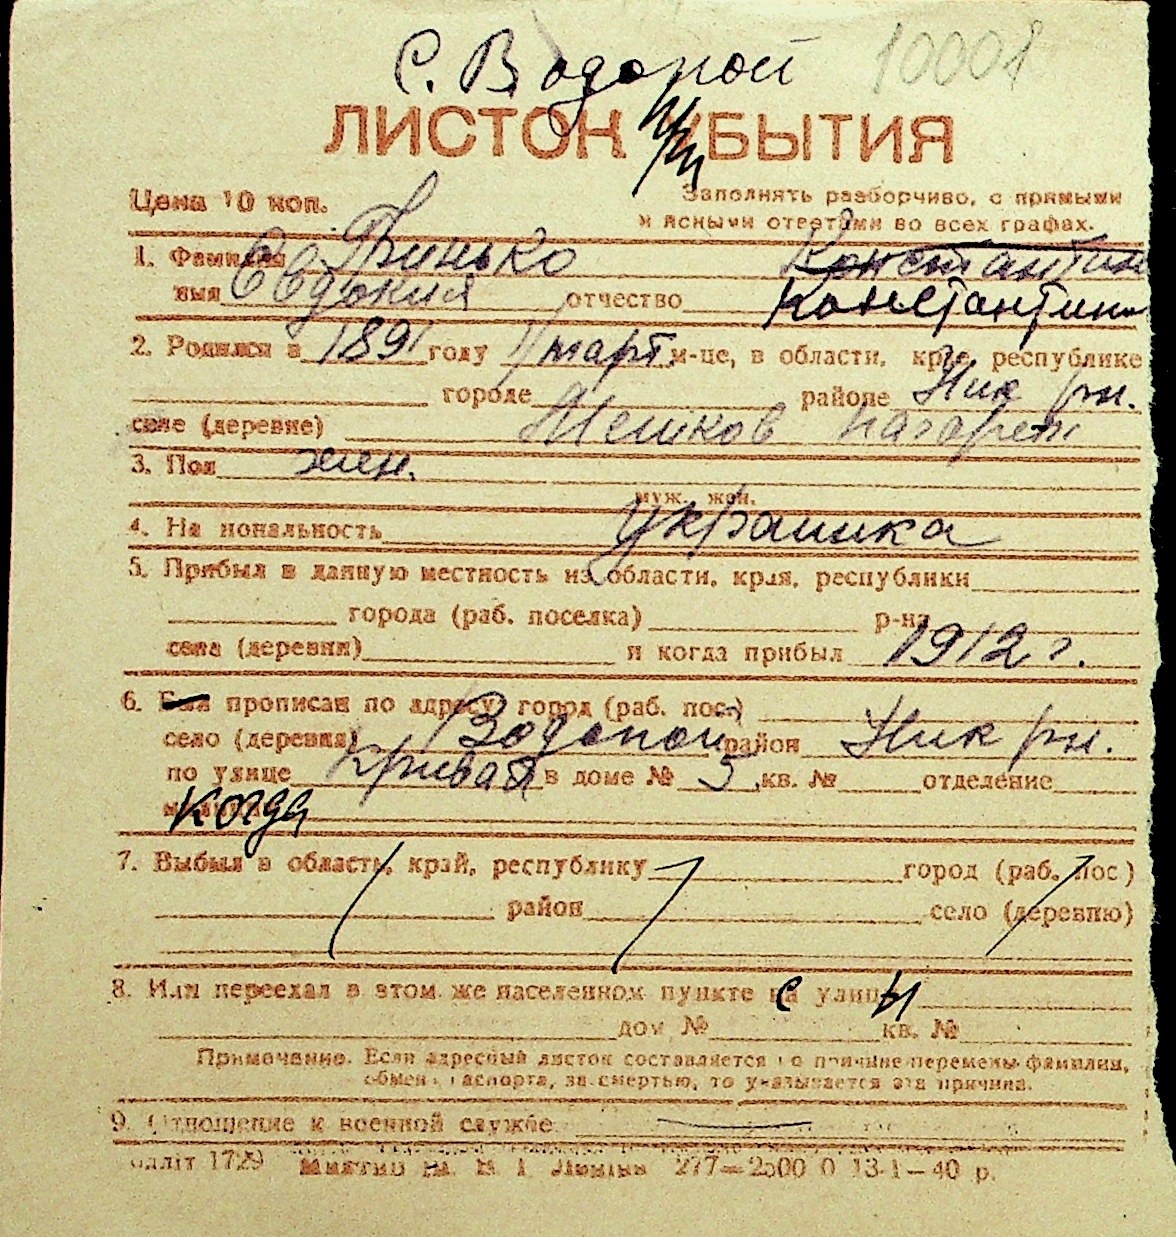 С. Водопой 10001
ЛИСТОК УБЫТИЯ
Цена 10 коп. Заполнять разборчиво, с прямыми
и ясными ответами во всех графах.
1. Фамилия Пинько Константин
имя Евдокия отчество Константин
2. Родился в 1891 году март м-це, в области, крае, республике
городе районе Ник рн.
селе (деревне) Мешков
3. Пол жен.
муж. жен.
4. Национальность украинка
5. Прибыл в данную местность из области, края, республики
города (раб. поселка) р-на
села (деревни) и когда прибыл 1912 г.
6. Был прописан по адресу город (раб. пос.)
село (деревня) Водопой район Ник рн.
по улице Кривая в доме № 5 кв. № отделение
когда
7. Выбыл в область, край, республику город (раб. пос)
район село (деревню)
8. Или переехал в этом же населенном пункте с улицы
дом № кв. №
Примечание. Если адресный листок составляется по причине перемены фамилии,
обмена паспорта, за смертью, то указывается эта причина.
9. Отношение к военной службе
1729 277—2500 0 13-1—40 р.